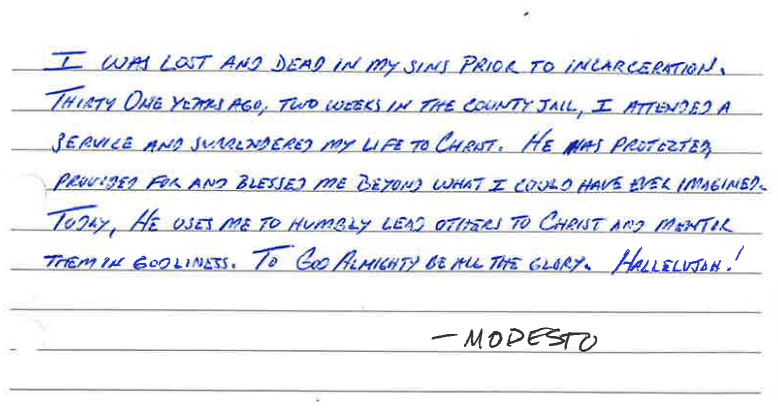 I WAS LOST AND DEAD IN MY SINS PRIOR TO INCARCERATION.
THIRTY ONE YEARS AGO, TWO WEEKS IN THE COUNTY JAIL, I ATTENDED A
SERVICE AND SURRENDERED MY LIFE TO CHRIST. HE HAS PROTECTED,
PROVIDED FOR AND BLESSED ME BEYOND WHAT I COULD HAVE EVER IMAGINED.
TODAY, HE USES ME TO HUMBLY LEAD OTHERS TO CHRIST AND MENTOR
THEM IN GODLINESS. TO GOD ALMIGHTY BE ALL THE GLORY. HALLELUJAH!
—MODESTO